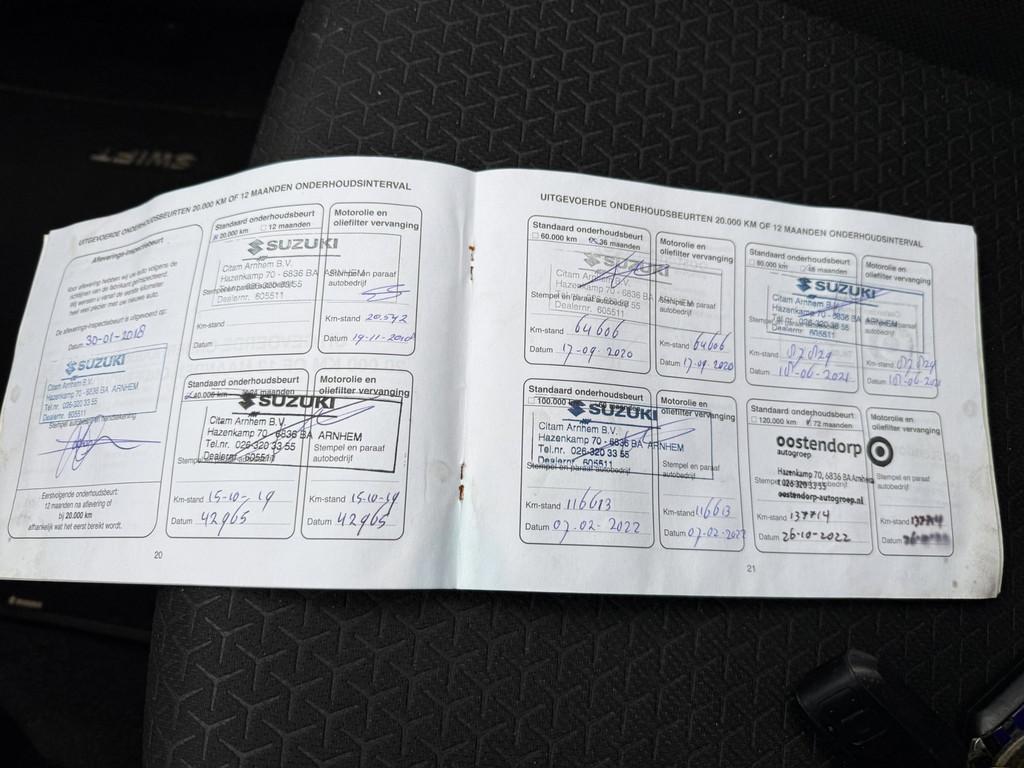 SWIFT
UITGEVOERDE ONDERHOUDSBEURTEN 20.000 KM OF 12 MAANDEN ONDERHOUDSINTERVAL
Afleverings-inspectiebeurt
Voor aflevering hebben wij uw auto volgens de
richtlijnen van de fabrikant geïnspecteerd.
Wij wensen u vanaf de eerste kilometer
heel veel plezier met uw nieuwe auto.
De afleverings-inspectiebeurt is uitgevoerd op:
Datum 30-01-2018
SUZUKI
Citam Arnhem B.V.
Hazenkamp 70 - 6836 BA ARNHEM
Tel.nr. 026-320 33 55
Dealernr. 605511
Eerstvolgende onderhoudsbeurt:
12 maanden na aflevering of
bij 20.000 km
afhankelijk wat het eerst bereikt wordt.
Standaard onderhoudsbeurt
20.000 km 12 maanden
SUZUKI
Citam Arnhem B.V.
Hazenkamp 70 - 6836 BA ARNHEM
Dealernr. 605511
Km-stand
Datum
Motorolie en
oliefilter vervanging
autobedrijf
Km-stand 20.542
Datum 19-11-2018
Standaard onderhoudsbeurt
40.000 km
SUZUKI
Citam Arnhem B.V.
Hazenkamp 70 - 6836 BA ARNHEM
Tel.nr. 026-320 33 55
Dealernr. 605511
Km-stand 15-10-19
Datum 42965
Motorolie en
oliefilter vervanging
Stempel en paraaf
autobedrijf
Km-stand 15-10-19
Datum 42965
20
UITGEVOERDE ONDERHOUDSBEURTEN 20.000 KM OF 12 MAANDEN ONDERHOUDSINTERVAL
Standaard onderhoudsbeurt
60.000 km 36 maanden
SUZUKI
Citam Arnhem B.V.
Hazenkamp 70 - 6836 BA ARNHEM
Stempel en paraaf autobedrijf
Km-stand 64606
Datum 17-09-2020
Motorolie en
oliefilter vervanging
autobedrijf
Km-stand 64606
Datum 17-09-2020
Standaard onderhoudsbeurt
80.000 km 48 maanden
SUZUKI
Citam Arnhem B.V.
Hazenkamp 70 - 6836 BA ARNHEM
Tel.nr. 026-320 33 55
Dealernr. 605511
Km-stand 87824
Datum 10-06-2021
Motorolie en
oliefilter vervanging
Km-stand 87824
Datum 10-06-2021
Standaard onderhoudsbeurt
100.000
SUZUKI
Citam Arnhem B.V.
Hazenkamp 70 - 6836 BA ARNHEM
Tel.nr. 026-320 33 55
Dealernr. 605511
Stempel en paraaf autobedrijf
Km-stand 116613
Datum 07-02-2022
Motorolie en
oliefilter vervanging
Stempel en paraaf
autobedrijf
Km-stand 116613
Datum 07-02-2022
Standaard onderhoudsbeurt
120.000 km 72 maanden
oostendorp
autogroep.
Hazenkamp 70, 6836 BA Arnhem
t 026 320 33 55
oostendorp-autogroep.nl
Km-stand 137714
Datum 26-10-2022
Motorolie en
oliefilter vervanging
Stempel en paraaf
autobedrijf
Km-stand 137714
Datum
21